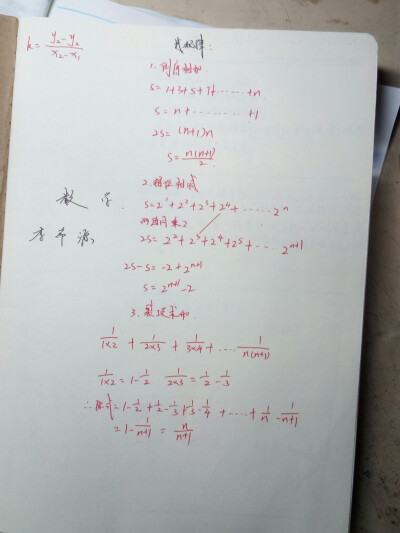 k = (y₂ - y₂)/(x₂ - x₁)
找规律:
1. 倒序相加
S = 1+3+5+7+……+n
S = n+………+1
2S = (n+1)n
S = n(n+1)/2
2. 错位相减
S = 2¹+2²+2³+2⁴+……2ⁿ
两边同乘2
2S = 2²+2³+2⁴+2⁵+……2ⁿ⁺¹
2S-S = -2+2ⁿ⁺¹
S = 2ⁿ⁺¹-2
数 学.
李 源
3. 裂项求和
1/(1×2) + 1/(2×3) + 1/(3×4) +…… 1/(n(n+1))
1/(1×2) = 1-1/2 1/(2×3) = 1/2-1/3
∴原式=1-1/2+1/2-1/3+1/3-1/4+……+1/n-1/(n+1)
=1-1/(n+1) = n/(n+1)